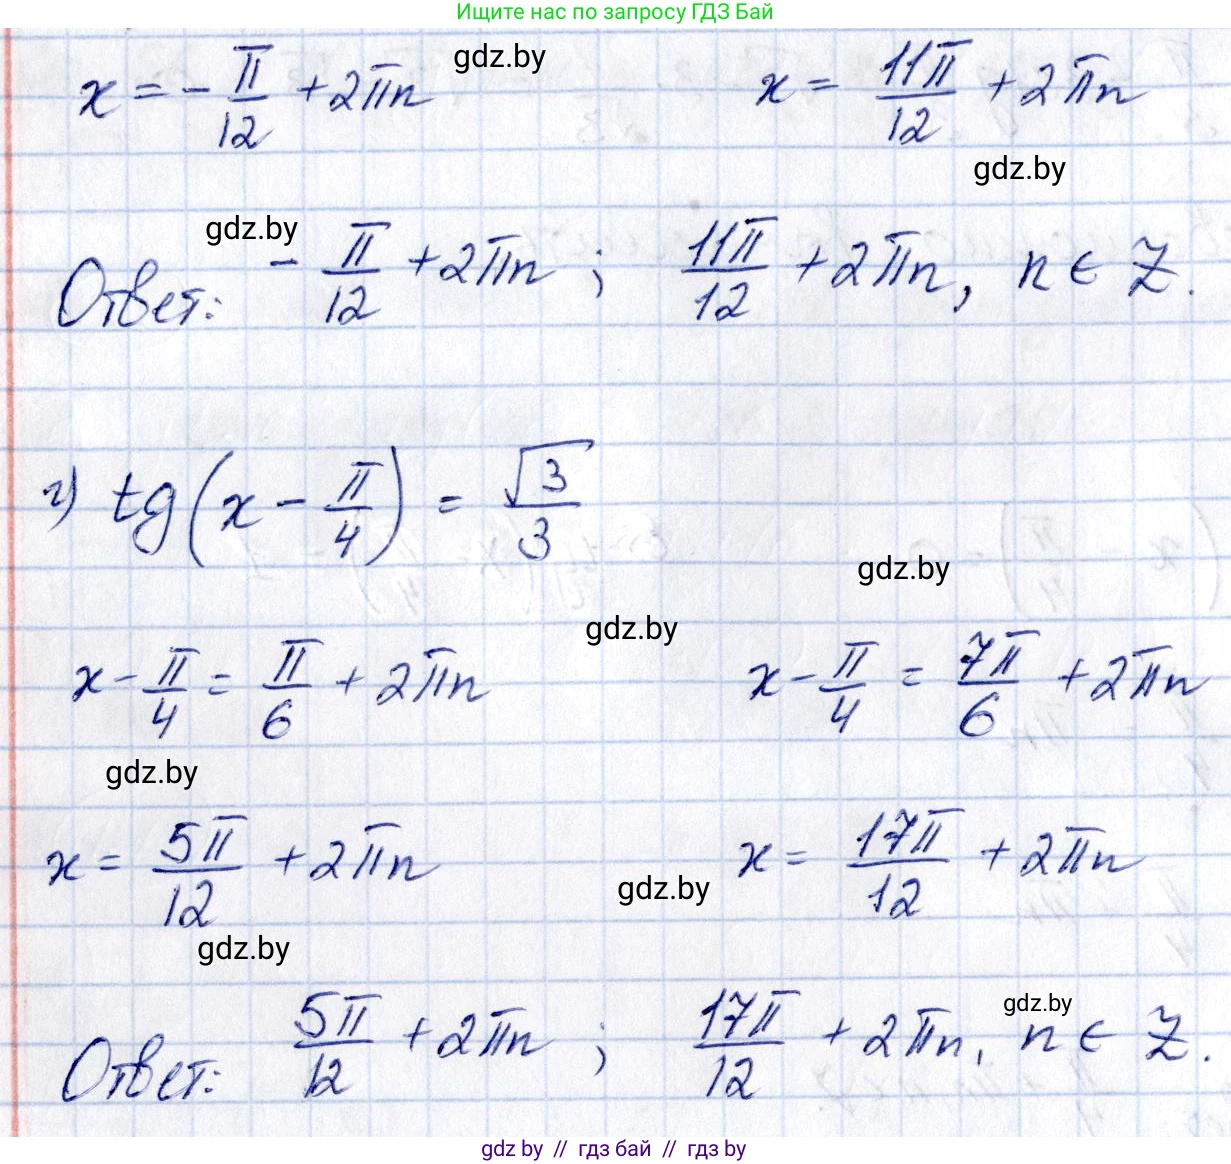 Ищите нас по запросу ГДЗ Бай
x = -π/12 + 2πn gdz.by x = 11π/12 + 2πn
gdz.by
gdz.by
Ответ: -π/12 + 2πn ; 11π/12 + 2πn, n ∈ Z.
г) tg(x - π/4) = √3/3
gdz.by
gdz.by
x - π/4 = π/6 + 2πn x - π/4 = 7π/6 + 2πn
gdz.by
x = 5π/12 + 2πn x = 17π/12 + 2πn
gdz.by
gdz.by
gdz.by
Ответ: 5π/12 + 2πn ; 17π/12 + 2πn, n ∈ Z.
gdz.by // гдз бай // gdz.by